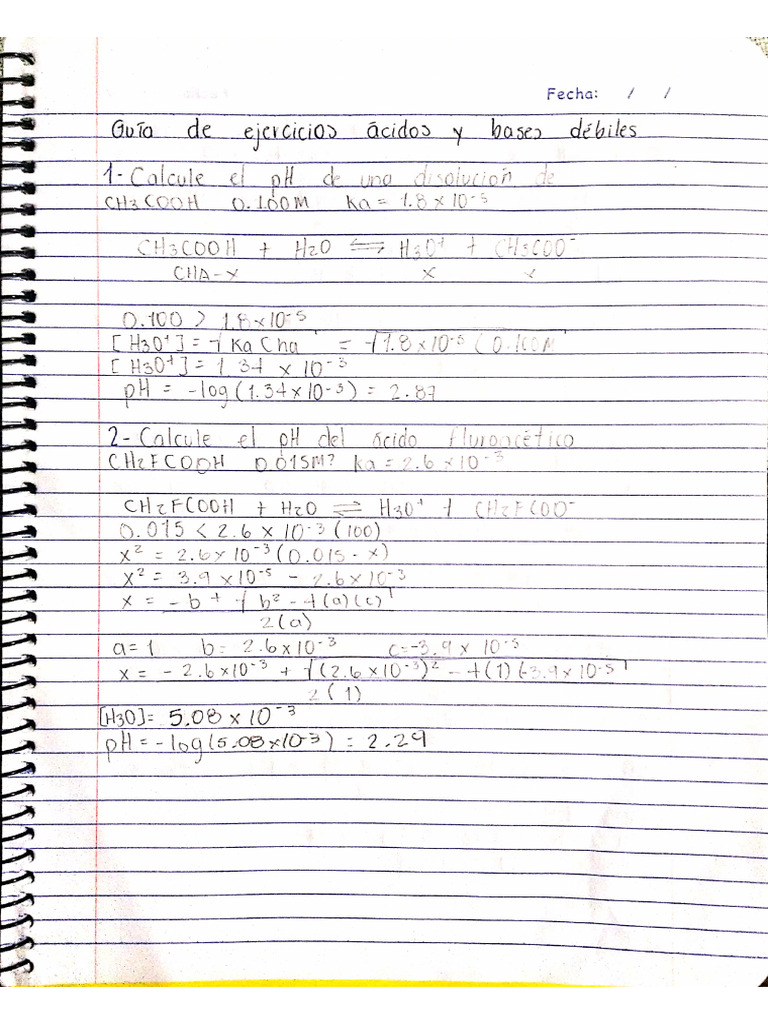 Fecha: / /
Guía de ejercicios ácidos y bases débiles
1- Calcule el pH de una disolución de
CH3COOH 0.100M Ka = 1.8 x 10-5
CH3COOH + H2O ⇌ H3O+ + CH3COO-
CHA-x x x
0.100 > 1.8x10-5
[H3O+] = √Ka Cha = √1.8 x 10-5 (0.100M
[H3O+] = 1.34 x 10-3
pH = -log(1.34x10-3) = 2.87
2- Calcule el pH del ácido fluroacético
CH2FCOOH 0.015M? Ka = 2.6 x 10-3
CH2FCOOH + H2O ⇌ H3O+ + CH2FCOO-
0.015 < 2.6 x 10-3 (100)
x2 = 2.6x10-3 (0.015 - x)
x2 = 3.9 x10-5 - 2.6 x 10-3
x = -b + √b2 - 4(a)(c)
2(a)
a=1 b= 2.6x10-3 c=-3.9 x 10-5
x = -2.6x10-3 + √(2.6x10-3)2 - 4(1)(-3.9x10-5
2(1)
[H3O]= 5.08 x 10-3
pH = -log(5.08x10-3) = 2.29